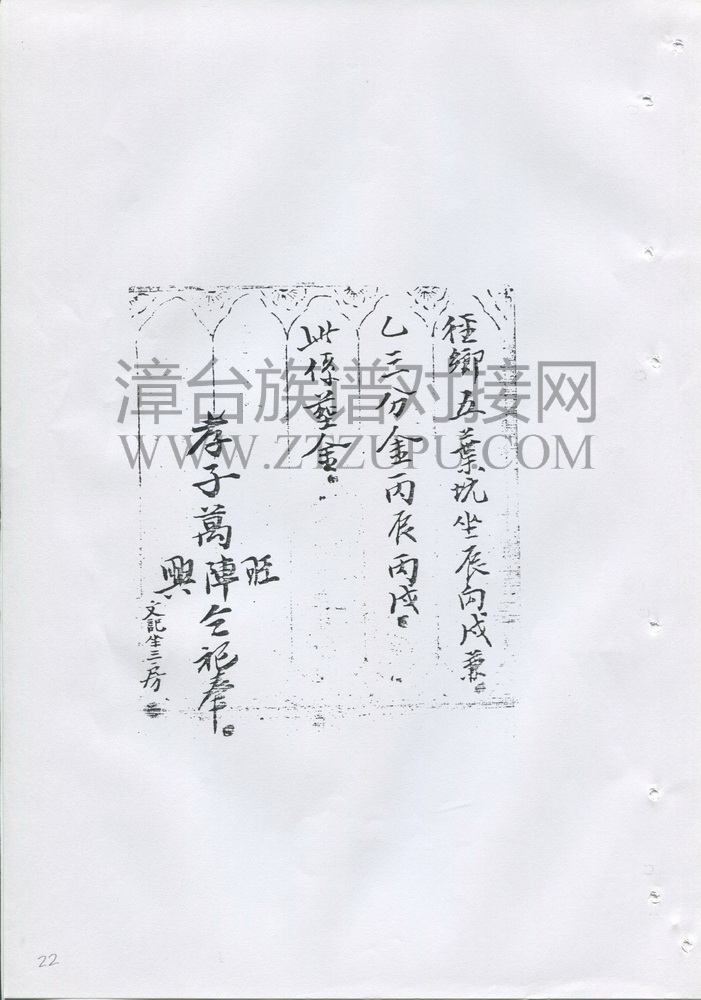 徑鄉五葉坑坐辰向戌兼
乙三分金丙辰丙戌
此係塋金
孝子萬陣仝祀奉
旺
興
文記坐三房
漳台族谱对接网
WWW.ZTZUPU.COM
22